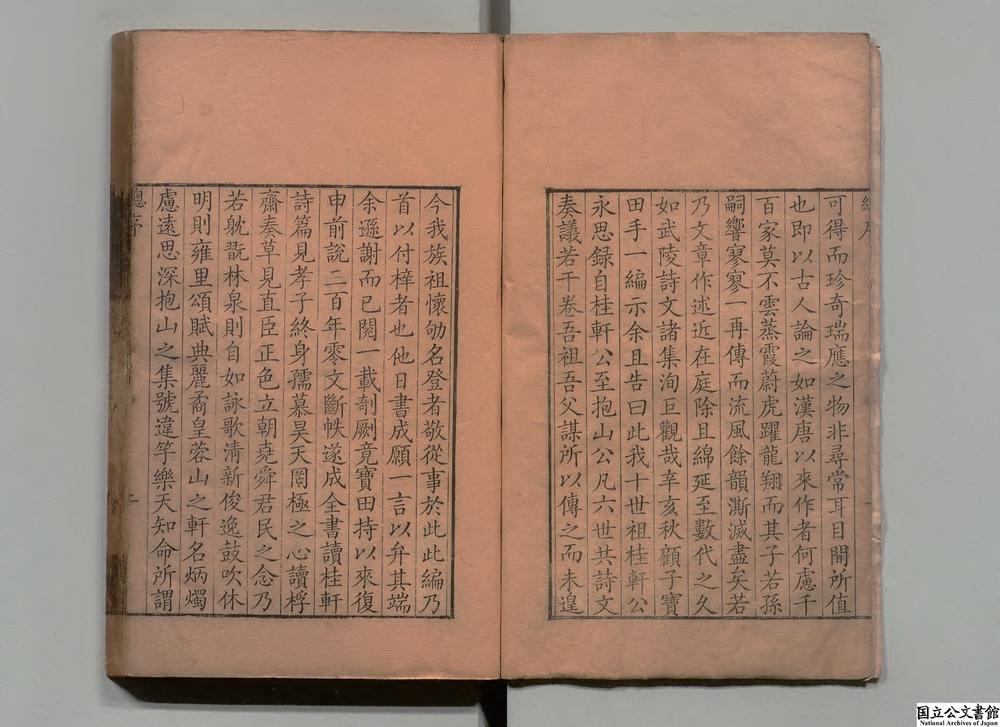 總序
可得而珍奇瑞應之物非尋常耳目間所值
也即以古人論之如漢唐以來作者何慮千
百家莫不雲蒸霞蔚虎躍龍翔而其子若孫
嗣響寥寥一再傳而流風餘韻澌滅盡矣若
乃文章作述近在庭除且綿延至數代之久
如武陵詩文諸集洵巨觀哉辛亥秋顧子寶
田手一編示余且告曰此我十世祖桂軒公
永思録自桂軒公至抱山公凡六世共詩文
奏議若干卷吾祖吾父謀所以傳之而未遑
今我族祖懷劬名登者敬從事於此此編乃
首以付梓者也他日書成願一言以弁其端
余遜謝而已閱一載剞劂竟寶田持以來復
申前說二百年零文斷帙遂成全書讀桂軒
詩篇見孝子終身孺慕昊天罔極之心讀桴
齋奏草見直臣正色立朝堯舜君民之念乃
若躭翫林泉則自如詠歌清新俊逸鼓吹休
明則雍里頌賦典麗矞皇蓉山之軒名炳燭
慮遠思深抱山之集號違竽樂天知命所謂
總序
二
国立公文書館
National Archives of Japan